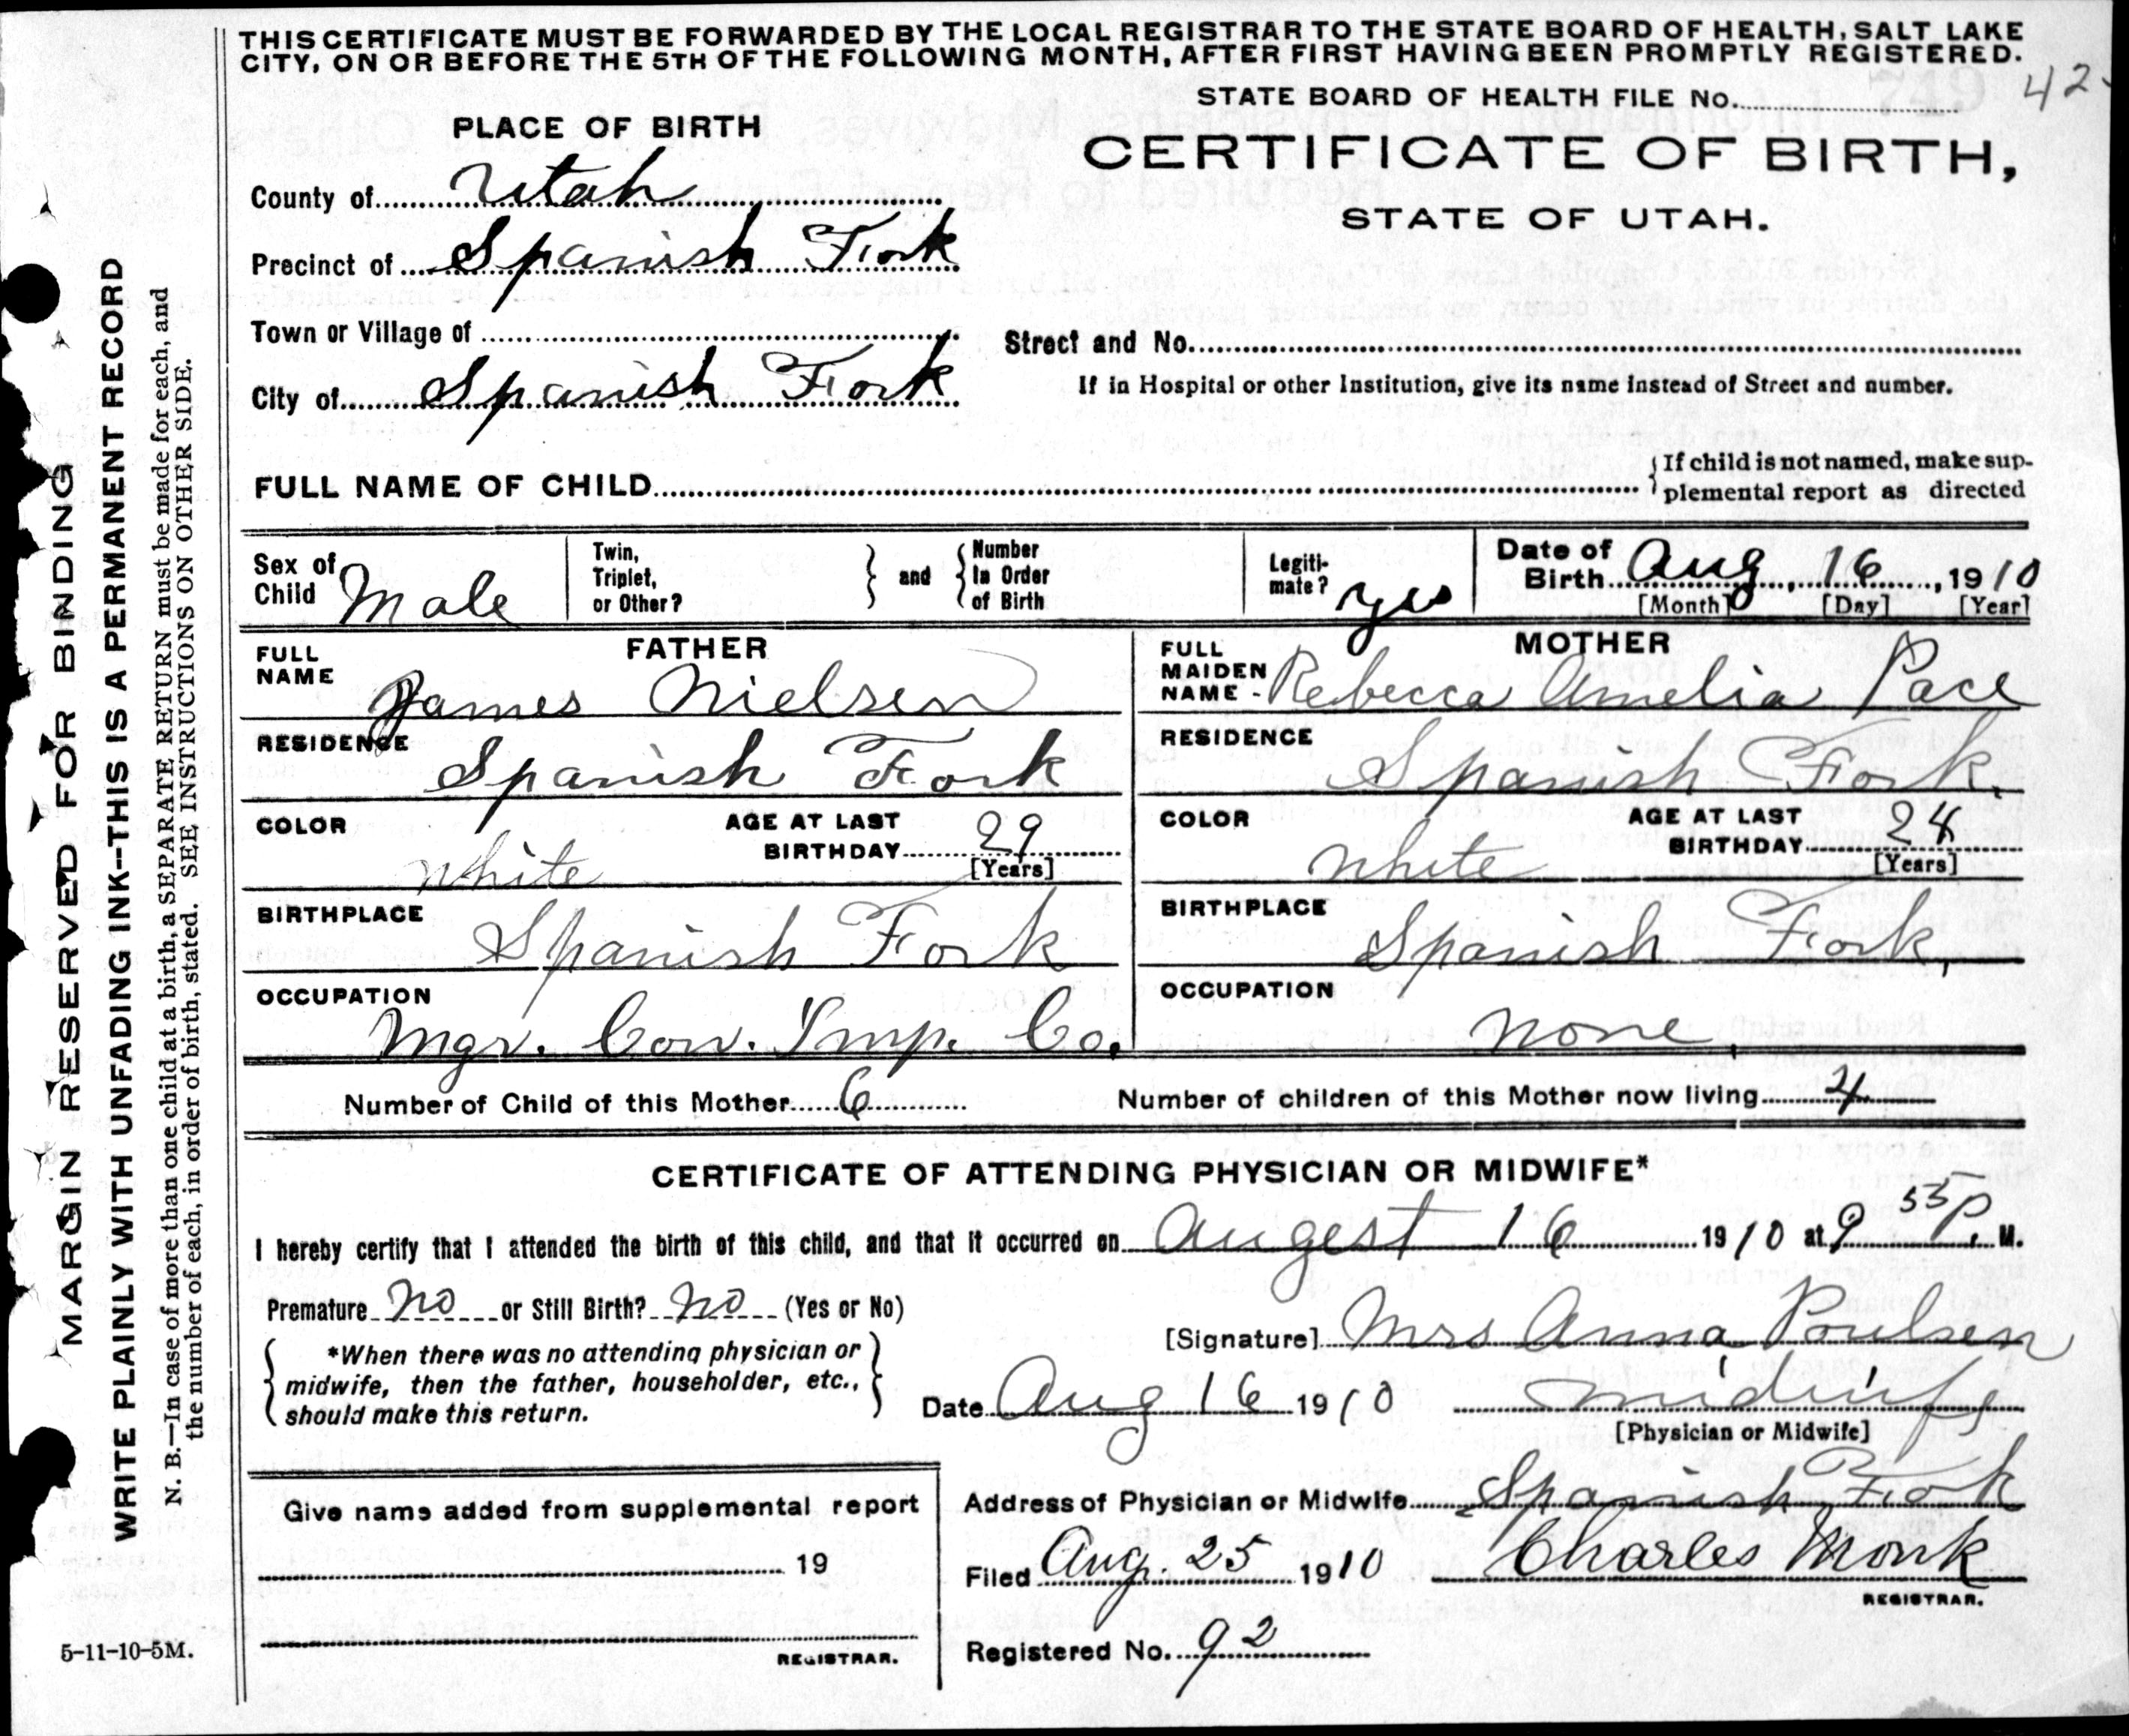 THIS CERTIFICATE MUST BE FORWARDED BY THE LOCAL REGISTRAR TO THE STATE BOARD OF HEALTH, SALT LAKE
CITY, ON OR BEFORE THE 5TH OF THE FOLLOWING MONTH, AFTER FIRST HAVING BEEN PROMPTLY REGISTERED.
42
STATE BOARD OF HEALTH FILE No.
PLACE OF BIRTH
CERTIFICATE OF BIRTH,
STATE OF UTAH.
County of Utah
Precinct of Spanish Fork
Town or Village of
Street and No.
City of Spanish Fork
If in Hospital or other Institution, give its name instead of Street and number.
FULL NAME OF CHILD
{If child is not named, make sup-
plemental report as directed
Sex of Child Male
Twin, Triplet, or Other? } and { Number In Order of Birth
Legiti-mate? yes
Date of Birth Aug 16, 1910
[Month] [Day] [Year]
FATHER
FULL NAME James Nielsen
RESIDENCE Spanish Fork
COLOR white AGE AT LAST BIRTHDAY 29 [Years]
BIRTHPLACE Spanish Fork
OCCUPATION Mgr. Con. Imp. Co.
MOTHER
FULL MAIDEN NAME - Rebecca Amelia Pace
RESIDENCE Spanish Fork.
COLOR white AGE AT LAST BIRTHDAY 24 [Years]
BIRTHPLACE Spanish Fork,
OCCUPATION none
Number of Child of this Mother 6 Number of children of this Mother now living 4
CERTIFICATE OF ATTENDING PHYSICIAN OR MIDWIFE*
I hereby certify that I attended the birth of this child, and that it occurred on Augest 16 1910 at 9 55 p. M.
Premature no or Still Birth? no (Yes or No)
[Signature] Mrs Anna Poulsen
{ *When there was no attending physician or
midwife, then the father, householder, etc.,
should make this return. }
Date Aug 16 1910 midwife
[Physician or Midwife]
Address of Physician or Midwife Spanish Fork
Filed Aug. 25 1910 Charles Monk
REGISTRAR.
Registered No. 92
Give name added from supplemental report
19
REGISTRAR.
5-11-10-5M.
MARGIN RESERVED FOR BINDING
WRITE PLAINLY WITH UNFADING INK--THIS IS A PERMANENT RECORD
N. B.—In case of more than one child at a birth, a SEPARATE RETURN must be made for each, and
the number of each, in order of birth, stated. SEE INSTRUCTIONS ON OTHER SIDE.